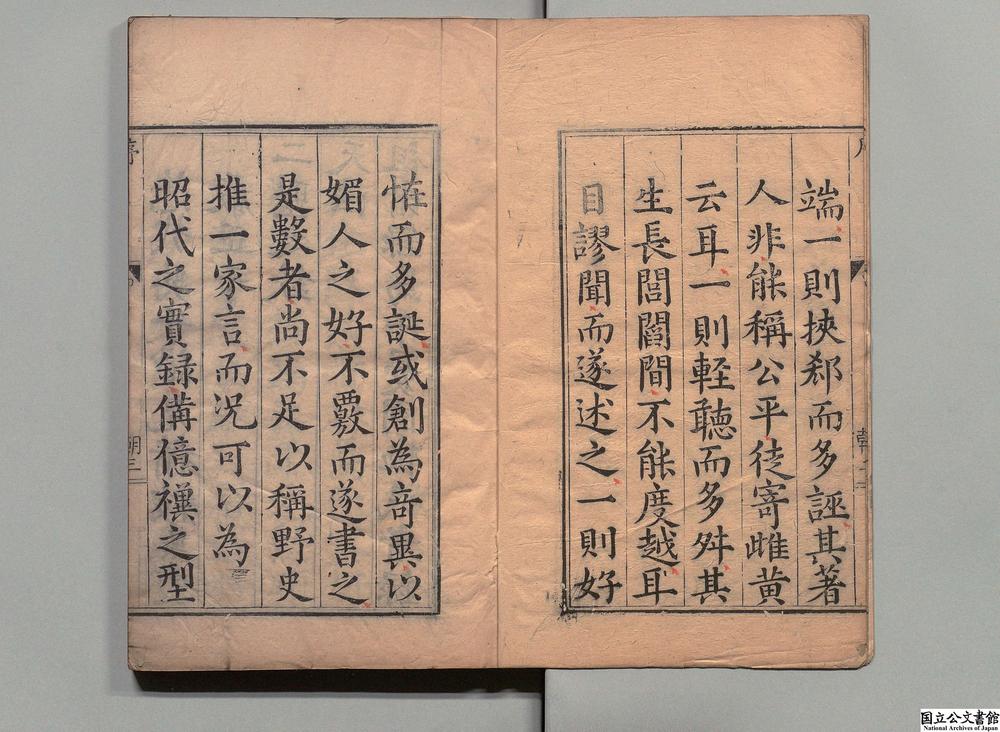 端一則挾郄而多誣其著
人非能稱公平徒寄雌黄
云耳一則輕聽而多舛其
生長閭閻間不能度越耳
目謬聞而遂述之一則好
恠而多誕或創為竒異以
媚人之好不覈而遂書之
是數者尚不足以稱野史
推一家言而况可以為
昭代之實録備億禩之型
序
朝三
国立公文書館
National Archives of Japan